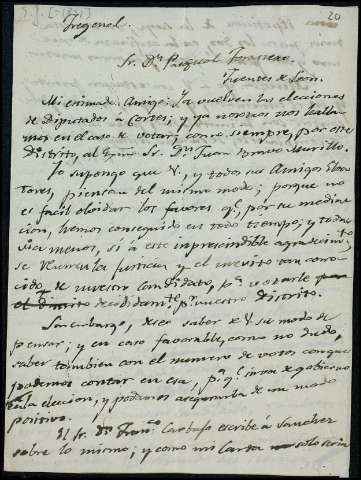 20
Fregenal.
Sr. Dn. Pasqual
Fuentes de León.
Mi estimado Amigo: Ya vuelven las elecciones
de Diputados á Cortes; y ya nosotros nos halla-
mos en el caso de votar, como siempre, por este
Distrito, al Exmo. Sr. Dn. Juan Bravo Murillo.
Yo supongo que V., y todos sus Amigos Elec-
tores, piensan del mismo modo; porque no
es facil olvidar los favores qe., por su media-
cion, hemos conseguido en todo tiempo; y toda-
via menos, si á este imprescindible agradecimto.
se reunen la justicia y el merito tan cono-
cido, de nuestro Candidato, pa. votarle
decididamte. pr. nuestro Distrito.
Sin embargo, deseo saber de V. su modo de
pensar; y en caso favorable, como no dudo,
saber tambien con el numero de votos con que
podemos contar en esa, pa. qe. sirva de gobierno
en la eleccion, y podamos asegurarla de un modo
positivo.
El Sr. Dn. Franco. Carbajo escribe á Sanchez
sobre lo mismo; y como mi Carta solo